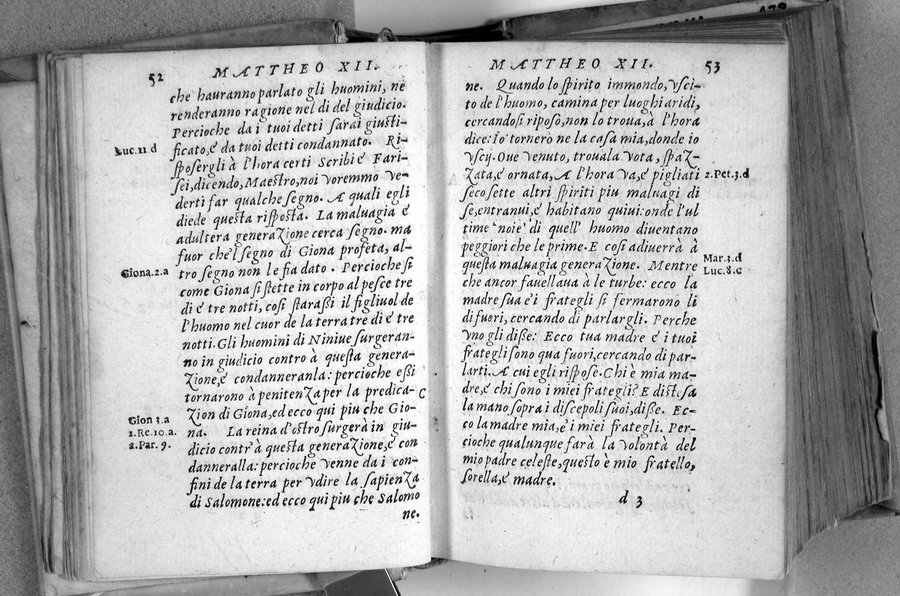 52 MATTHEO XII.
che hauranno parlato gli huomini, ne
renderanno ragione nel di del giudicio.
Percioche da i tuoi detti sarai giusti-
Luc.11.d ficato, é da tuoi detti condannato. Ri-
sposergli à l'hora certi Scribi é Fari-
sei, dicendo, Maestro, noi voremmo ve-
derti far qualche segno. A quali egli
diede questa risposta. La maluagia é
adultera generazione cerca segno. ma
fuor che'l segno di Giona profeta, al-
Giona.2.a tro segno non le fia dato. Percioche si
come Giona si stette in corpo al pesce tre
di é tre notti, cosi starassi il figliuol de
l'huomo nel cuor de la terra tre di é tre
notti. Gli huomini di Niniue surgeran-
no in giudicio contro à questa genera-
zione, é condanneranla: percioche essi
tornarono à penitenza per la predica- C
Gion 3.a zion di Giona, ed ecco qui piu che Gio-
1.Re.10.a. na. La reina d'ostro surgerà in giu-
2.Par.9. dicio contr'à questa generazione, é con
danneralla: percioche venne da i con-
fini de la terra per vdire la sapienza
di Salomone: ed ecco qui piu che Salomo
ne.
MATTHEO XII. 53
ne. Quando lo spirito immondo, vsci-
to de l'huomo, camina per luoghi aridi,
cercandosi riposo, non lo troua, à l'hora
dice: Io tornerò ne la casa mia, donde io
vscij. Oue venuto, trouala vota, spaz-
zata, é ornata, A l'hora va, é pigliati 2.Pet.3.d
seco sette altri spiriti piu maluagi di
se, entranui, é habitano quiui: onde l'ul
time noie di quell' huomo diuentano
peggiori che le prime. E cosi adiuerrà à
questa maluagia generazione. Mentre Mar.3.d
che ancor fauellaua à le turbe: ecco la Luc.8.c
madre sua é i frategli si fermarono li
di fuori, cercando di parlargli. Perche
vno gli disse: Ecco tua madre é i tuoi
frategli sono qua fuori, cercando di par-
larti. A cui egli rispose. Chi è mia ma-
dre, é chi sono i miei frategli? E distesa
la mano sopra i discepoli suoi, disse. Ec-
co la madre mia, é i miei frategli. Per-
cioche qualunque farà la volontà del
mio padre celeste, questo è mio fratello,
sorella, é madre.
d 3